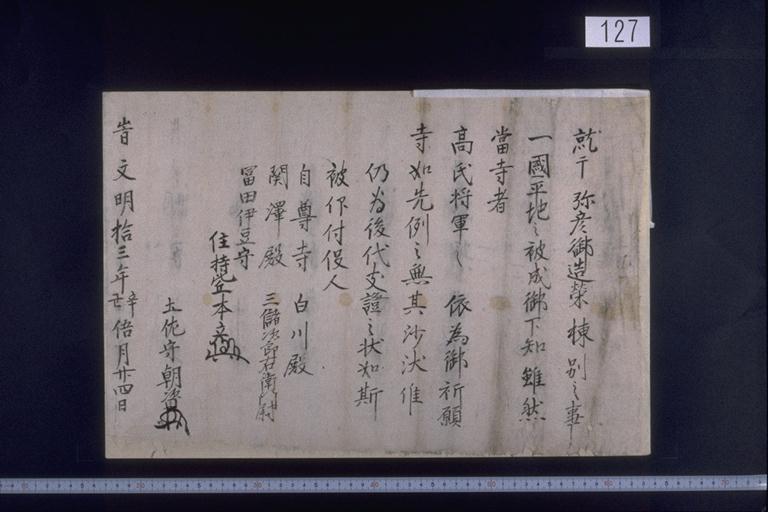 127
就于弥彦御造榮棟別之事
一國平地之被成御下知雖然
當寺者
高氏将軍之依為御祈願
寺如先例之無其沙汰
仍為後代支證之状如斯
被仰付役人
自尊寺 白川殿
関澤殿 三儲次郎右衛門尉
冨田伊豆守
住持
土佐守朝
旹文明拾三年辛丑 伍月廿四日